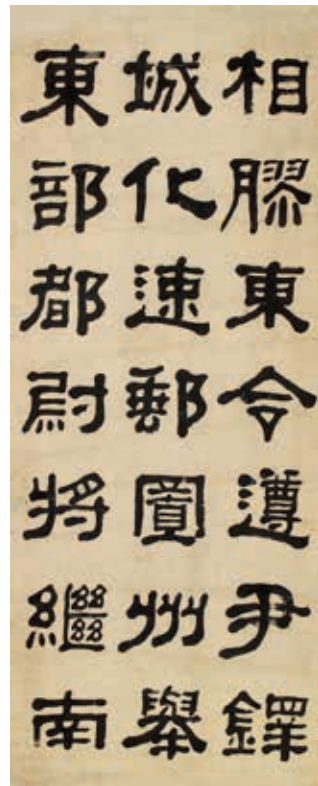 相膠東令遵尹鐸
城化速郵置州舉
東部都尉將繼南